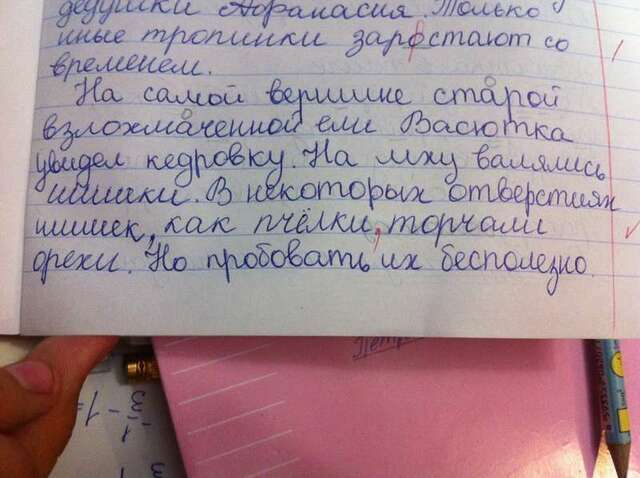 дедушки Афанасия. Только
иные тропинки заростают со
временем.
На самой вершине старой
взлохмаченной ели Васютка
увидел кедровку. На мху валялись
шишки. В некоторых отверстиях
шишек, как пчёлки, торчали
орехи. Но пробовать их бесполезно.